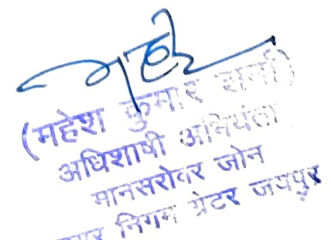 (महेश कुमार शर्मा)
अधिशाषी अभियंता
मानसरोवर जोन
निगम ग्रेटर जयपुर